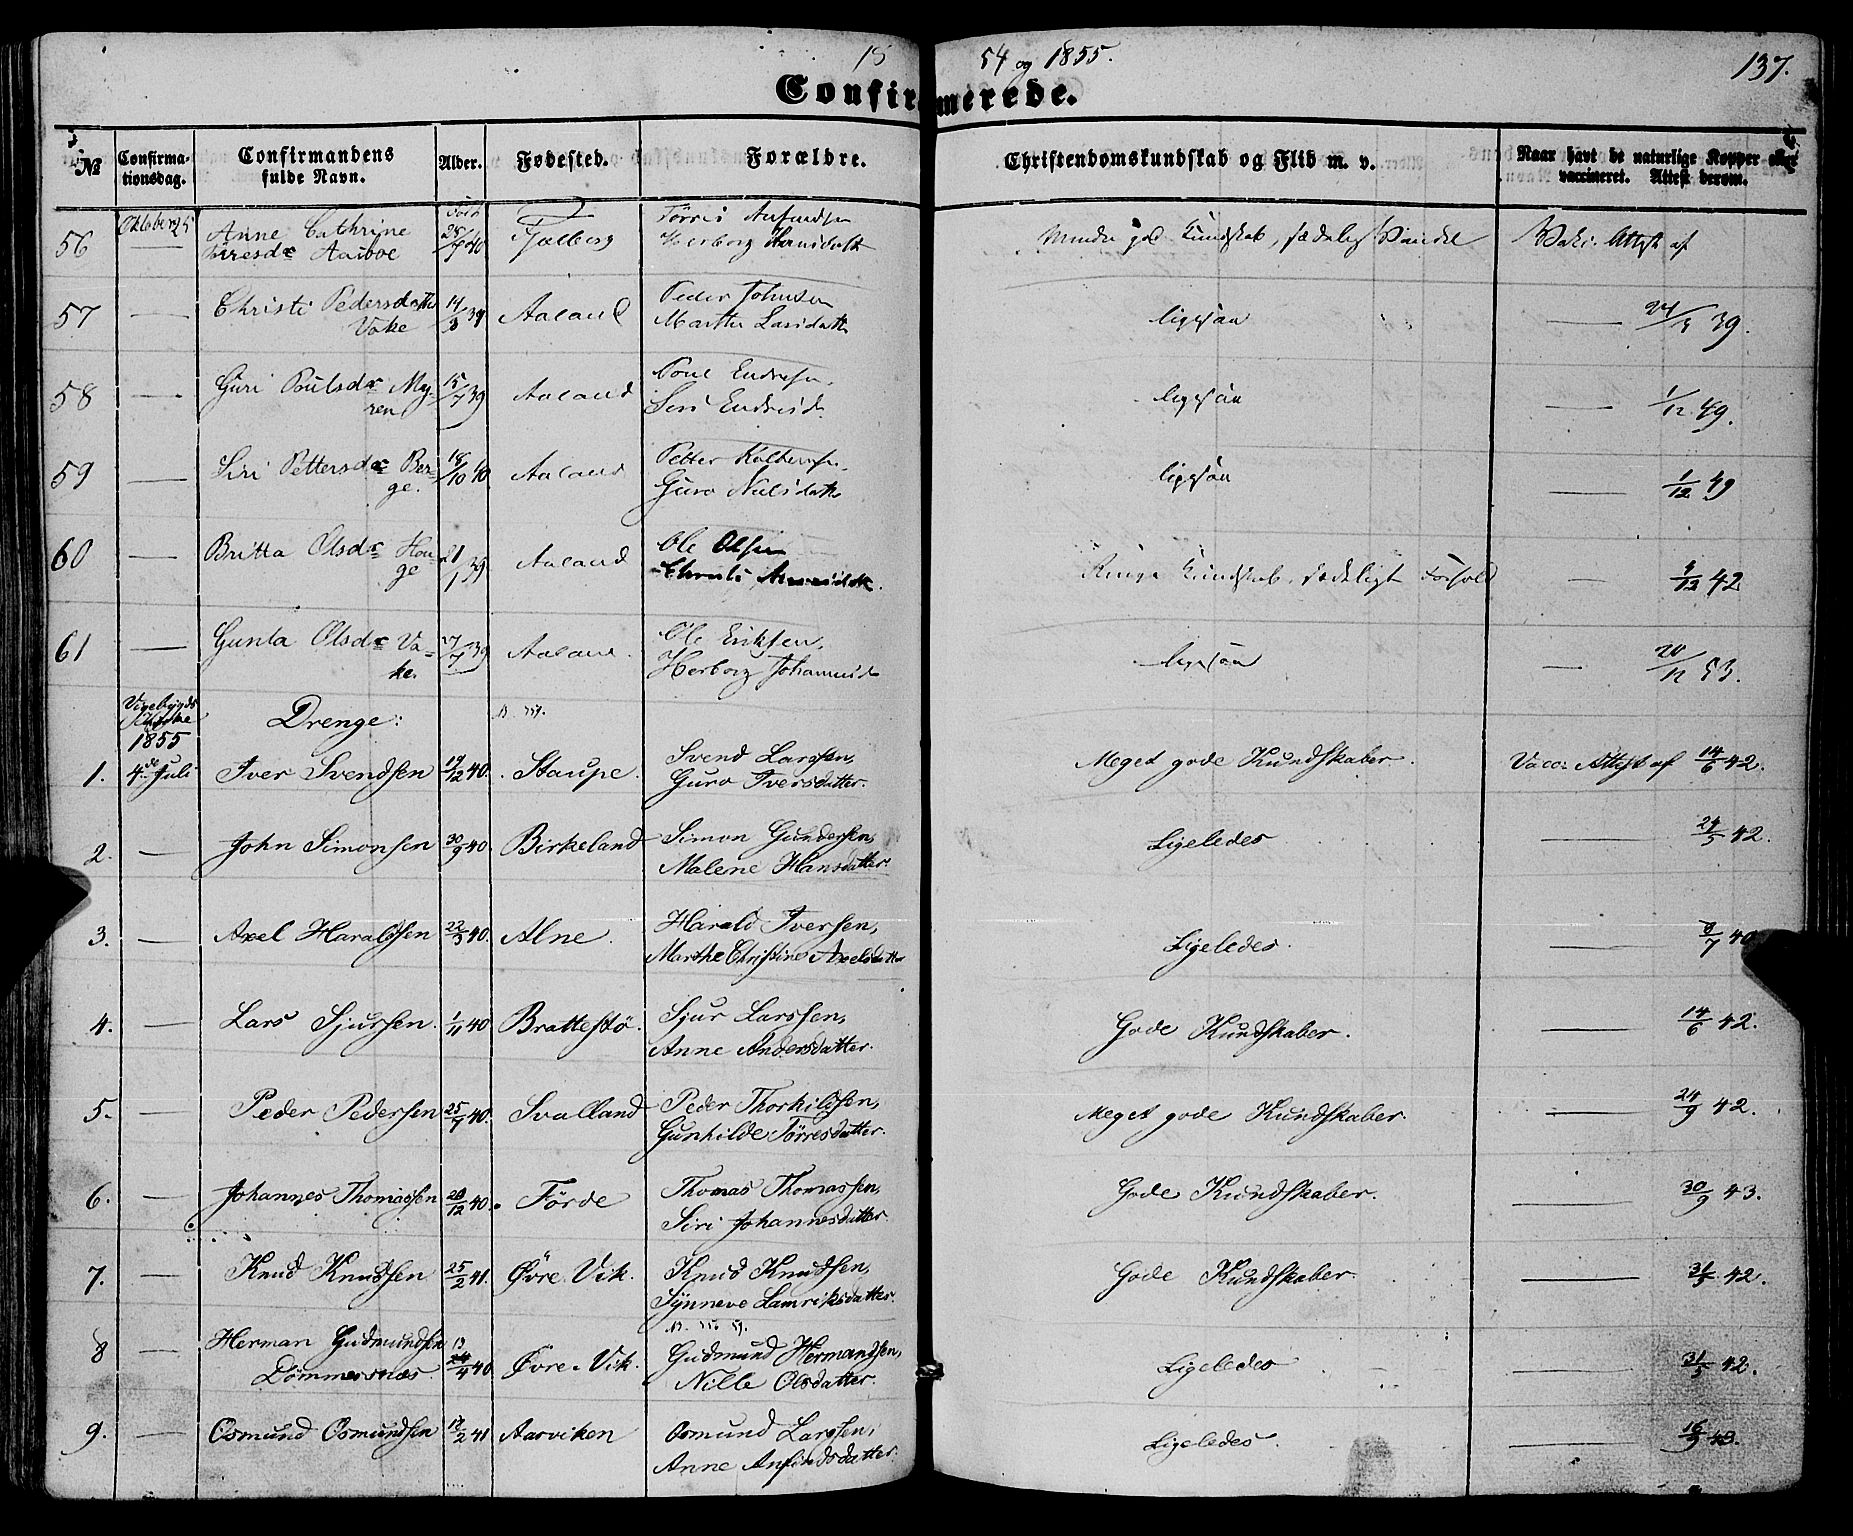 1854 og 1855. 137.
Confirmerede.
№ Confirma-tionsdag. Confirmandens fulde Navn. Alder. Fødested. Forældre. Christendomskundskab og Flid m. v. Naar havt de naturlige Kopper eller vaccineret. Attest derom.
56 Octeber 25 Anne Cathrine Fjelberg Herborg Kundskab, sædelig Vandel Attest af
57 — Christi Pedersdatter Vake 14/3 39 Aaland Peder Johnsen Martha Larsdatter ligesaa — 24/3 39.
58 — Guri Poulsdr Myren 15/7 39 Aaland Poul Endresen, Siri Endresd. ligesaa — 1/12 49.
59 — Siri Pettersdr Berge. 18/10 40 Aaland Petter Guro Nielsdatter ligesaa — 1/12 49
60 — Britta Olsdr Houge 21/1 39 Aaland Ole Olsen Christi Kundskab, sædeligt Forhold — 42
61 — Gunla Olsdr Vake. 27/7 39 Aaland. Ole Eriksen, Herborg Johannesd ligesaa — 20/12 53.
Vigebygds Kirke 1855 Drenge:
1. 4de Juli Iver Svendsen 19/12 40. Staupe. Svend Larssen, Guro Iversdatter. Meget gode Kundskaber. Vacc. Attest af 14/6 42.
2. — John Simonsen 30/9 40. Birkeland Simon Gundersen, Malene Hansdatter. Ligeledes — 24/5 42.
3. — Axel Haraldsen 22/3 40. Alne. Harald Iversen, Marthe Christine Axelsdatter Ligeledes. — 8/7 40
4. — Lars Sjursen. 1/11 40 Brattestö. Sjur Larssen, Anne Andersdatter. Gode Kundskaber. — 14/6 42.
5. — Peder Pedersen 25/7 40. Svalland Peder Thorkildsen, Gunhilde Törresdatter. Meget gode Kundskaber. — 24/9 42.
6. — Johannes Thomassen 28/12 40. Förde Thomas Thomassen, Siri Johannesdatter. Gode Kundskaber. — 30/9 43.
7. — Knud Knudsen 25/2 41. Øvre Vik. Knud Knudsen, Synneve Lamriksdatter. Gode Kundskaber. — 31/5 42.
8 — Herman Gudmundsen Dommersnæs 40 Øvre Vik. Gudmund Hermandsen, Nille Olsdatter. Ligeledes — 31/5 42.
9. — Osmund Osmundsen 17/2 41 Aarviken Osmund Larssen, Anne Anfindsdatter. Ligeledes. — 16/9 43.